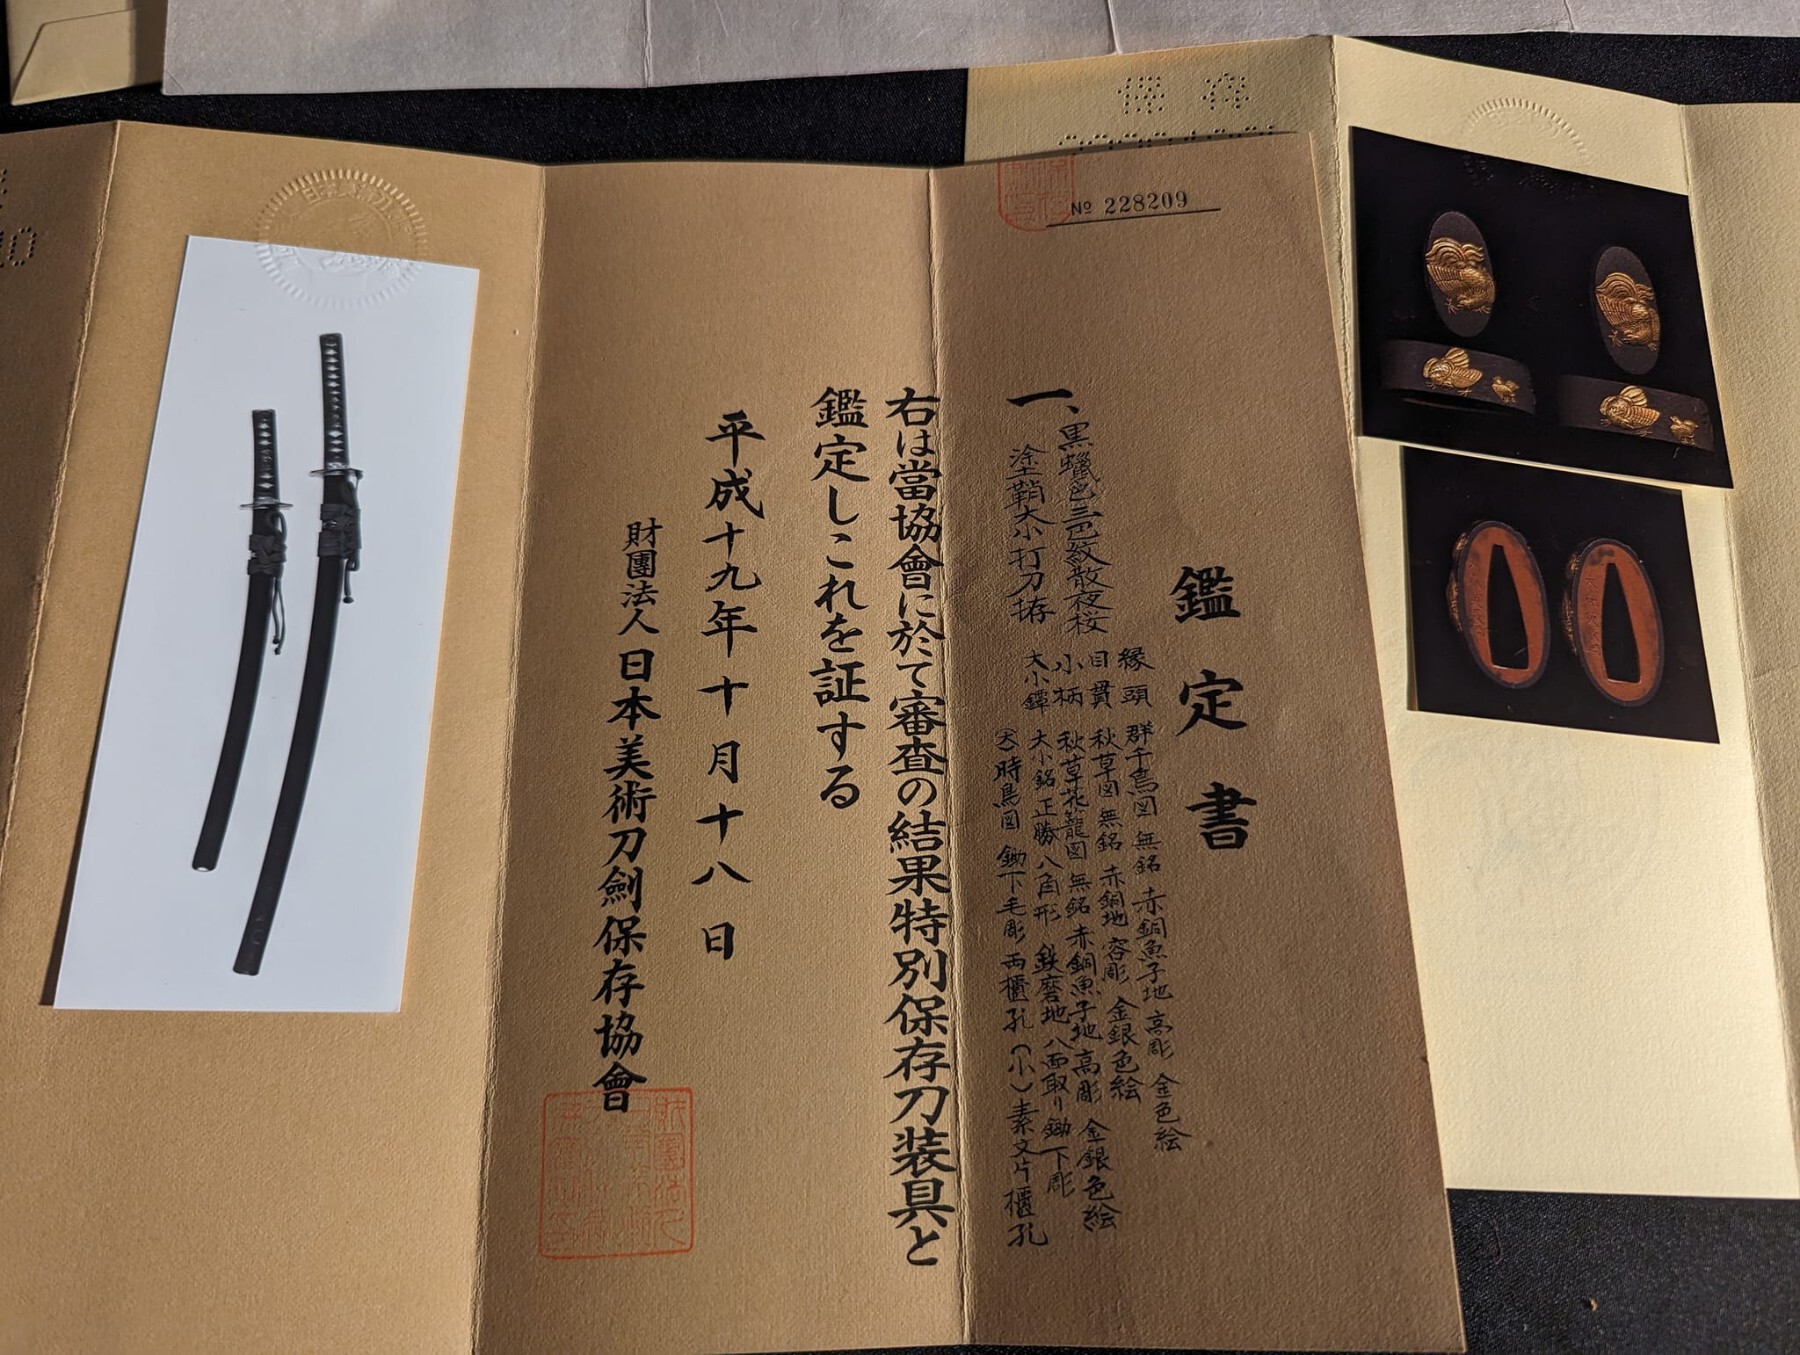 保存
№ 228209
鑑定書
一、黒蠟色三巴紋散夜桜
塗鞘大小打刀拵
縁頭 群千鳥図 無銘 赤銅魚子地 高彫 金色絵
目貫 秋草図 無銘 赤銅地 容彫 金銀色絵
小柄 秋草花籠図 無銘 赤銅魚子地 高彫 金銀色絵
大小鐔 大小銘 正勝 八角形 鉄磨地 八面取り 鋤下彫
時鳥図 鋤下毛彫 両櫃孔 (小)素文片櫃孔
右は當協會に於て審査の結果特別保存刀装具と
鑑定しこれを証する
平成十九年十月十八日
財團法人 日本美術刀劍保存協會